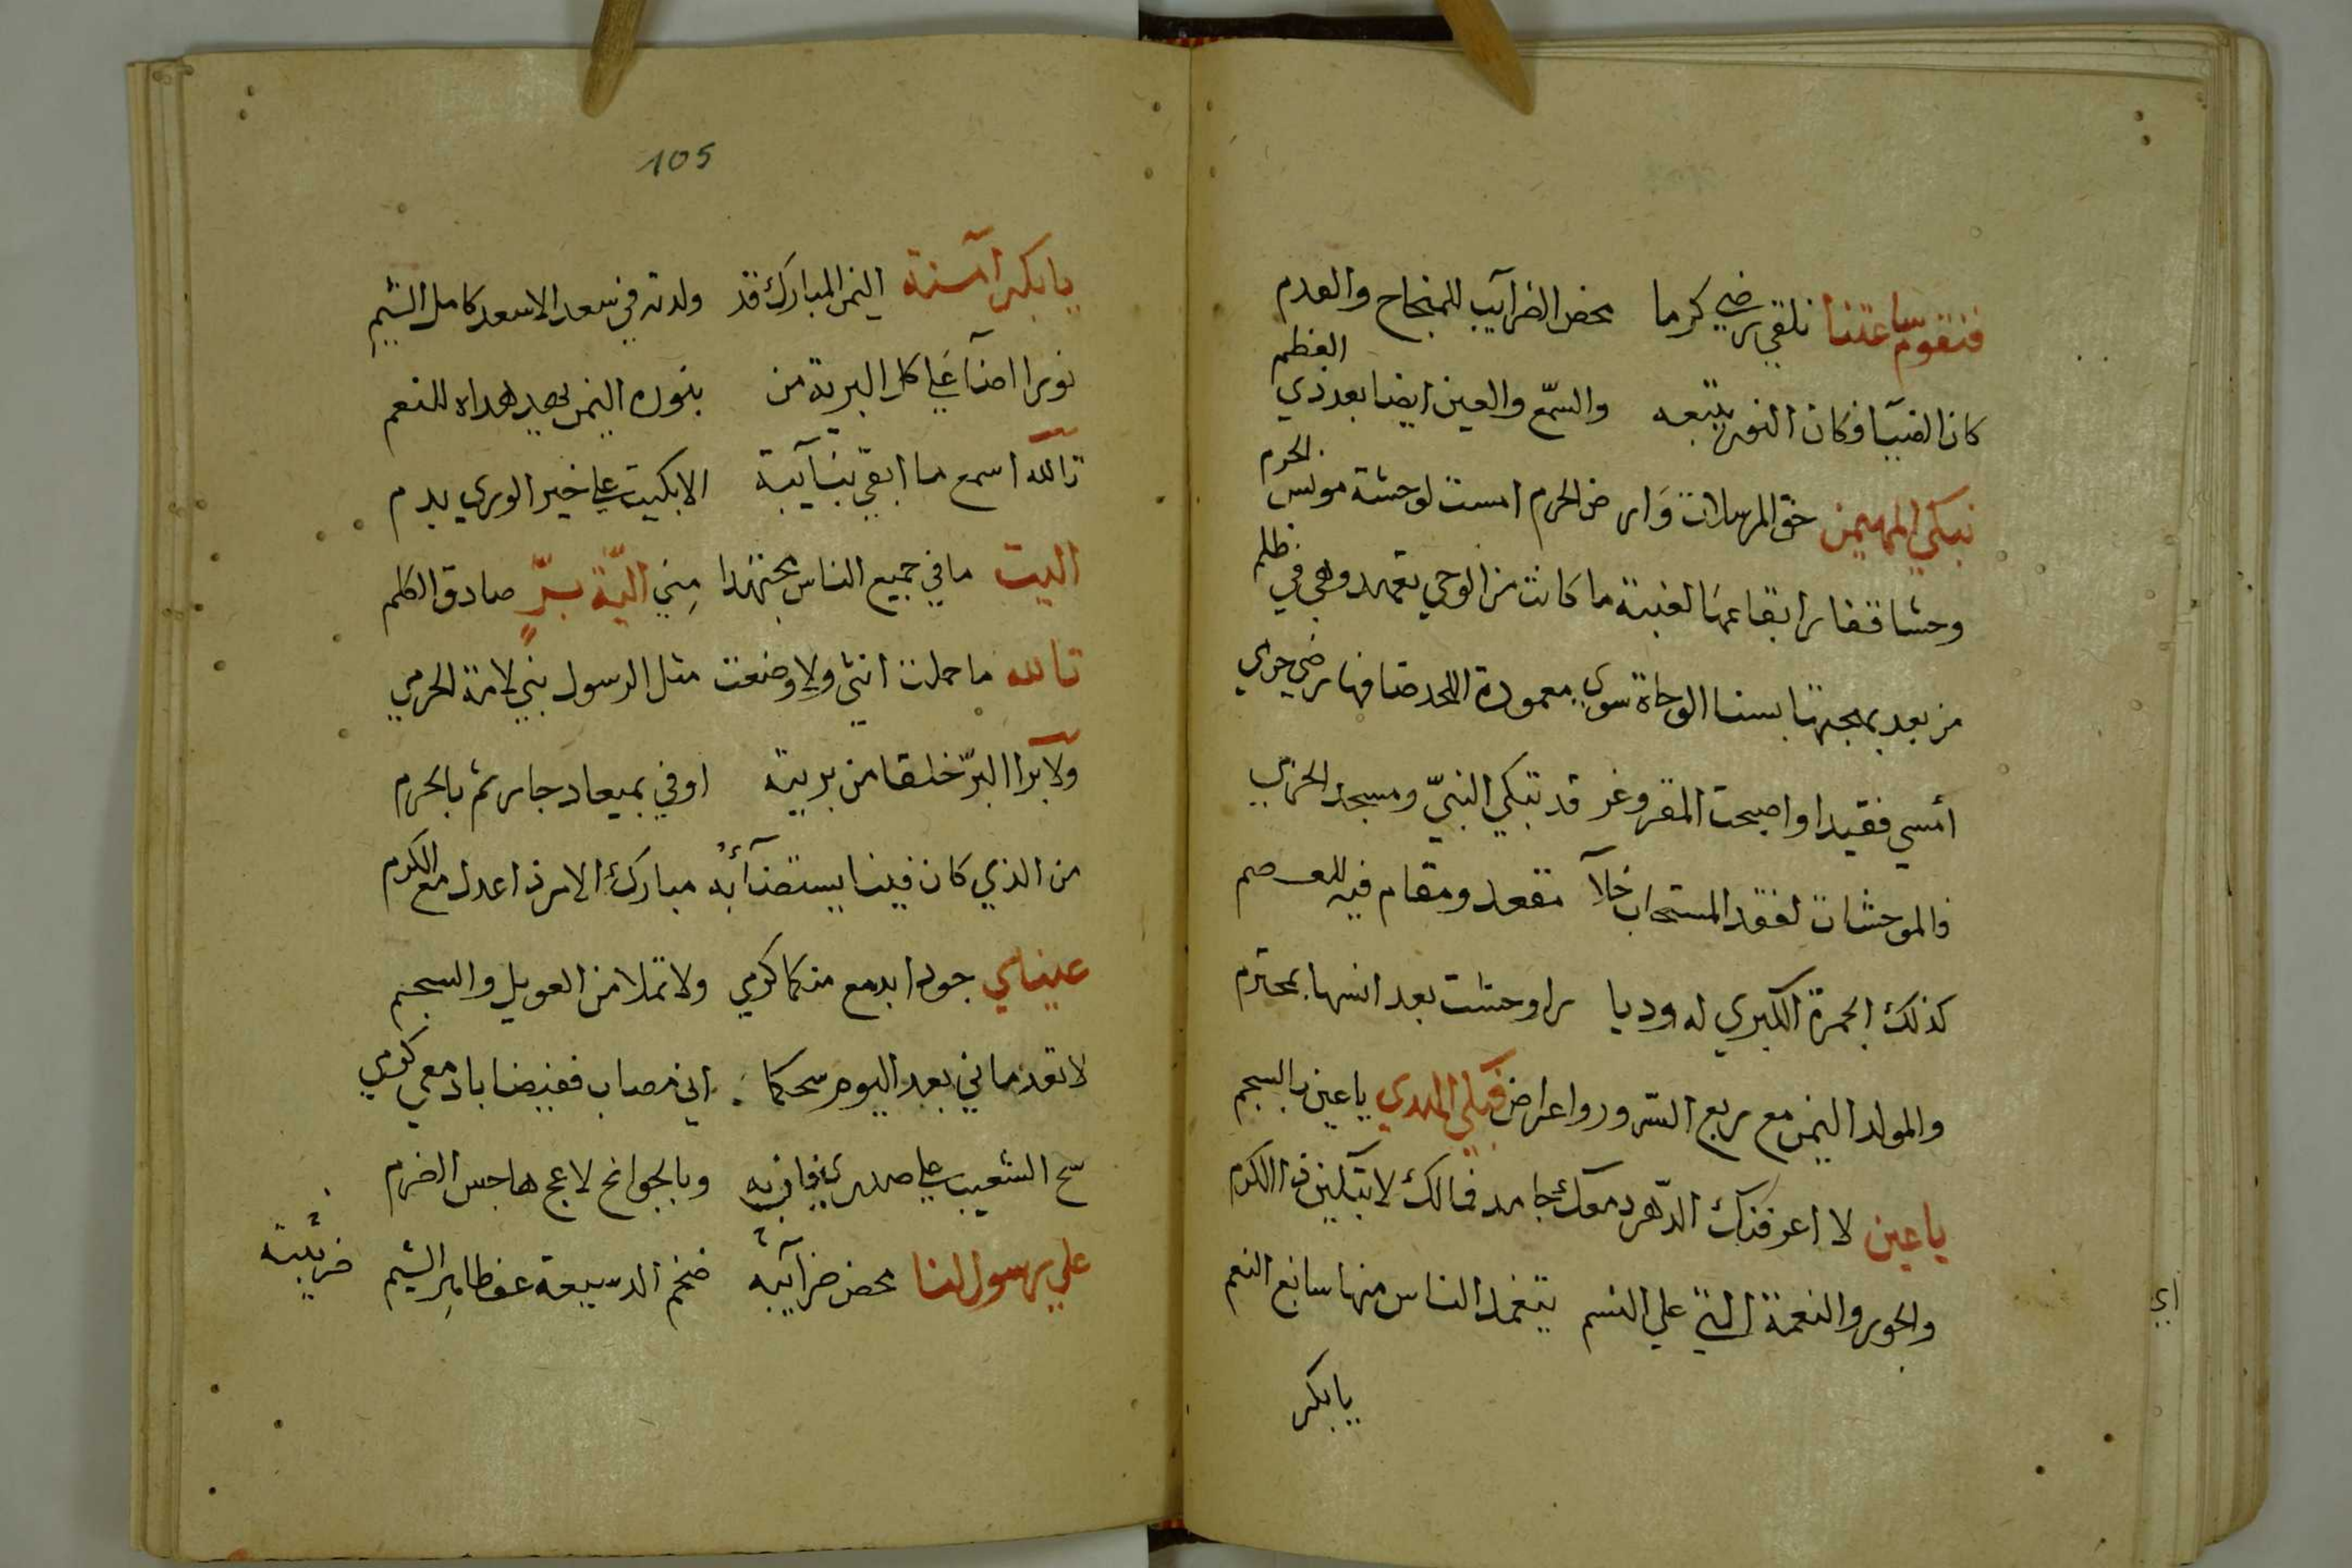 فنقوم ساعتنا نلقي رضي كرما محض الضرآيب للمنجاح والعدم
كان الضيآ وكان النور يتبعه والسّمع والعين ايضا بعد ذي العظم
نبكي المهيمن حق المرسلات وَارض الحرم امست لوحشة مونس الحرم
وحشا قفارا بقاعها لغيبة ما كانت من الوحي تعهد وهي في ظلم
من بعد بهجتها بسنا الوجاة سوي معمورة اللحد ضافها رضي حري
أمسي فقيدا واصبحت المقر وغر قد تبكي النبيّ ومسجد الحزني
فالموحشات لفقد المستجاب خلآ مقعد ومقام فيه للعصم
كذلك الجمرة الكبري له وديا را وحشت بعد انسها بمحترم
والمولد اليمن مع ربع السّرور واعراض فبكي المهدي يا عين بالسجم
يا عين لا اعرفنك الدّهر دمعك جامد فمالك لا تبكين ذا الكرم
والجور والنعمة التي علي النسم يتغمد الناس منها سابغ النعم
يا بكر
اي
105
يا بكر آمنة اليمن المبارك قد ولدته في سعد الاسعد كامل الشيمِ
نورا اضآ علي كل البرية من بنوره اليمن يهد هداه للنعم
تآلله اسمع ما ابقي بنآيبة الا بكيت علي خير الوري بدم
آليت ما في جميع الناس مجتهدا مِني اليّة برٍّ صادق الكلم
تالله ما حملت انثي ولا وضعت مثل الرسول نبي لامة الحرمي
ولآ برا البرّ خلقا من برية اوفي بميعاد جار ثم بالحرم
من الذي كان فينا يستضآئ به مبارك الامر ذا عدل مع الكرم
عيناي جودا بدمع منكما كرمي ولا تملا من العويل والسجم
لا تعذماني بعد اليوم سحكما اني مصاب ففيضا بادمعي كرمي
سح الشعيب علي صدري فانيه وبالجوانح لاعج هاجس الضرم
علي رسول لنا محض ضرآيبه ضخم الدسيعة عف طاهر الشيم
ضريبة